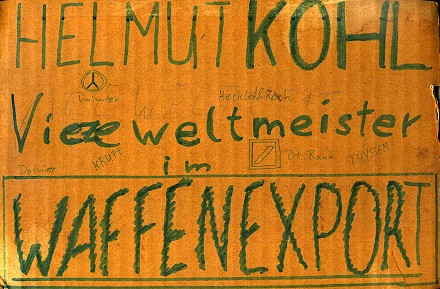 HELMUT KOHL
Daimler Heckler & Koch
Vizeweltmeister
Dornier KRUPP Dt. Bank THYSSEN
im
WAFFENEXPORT